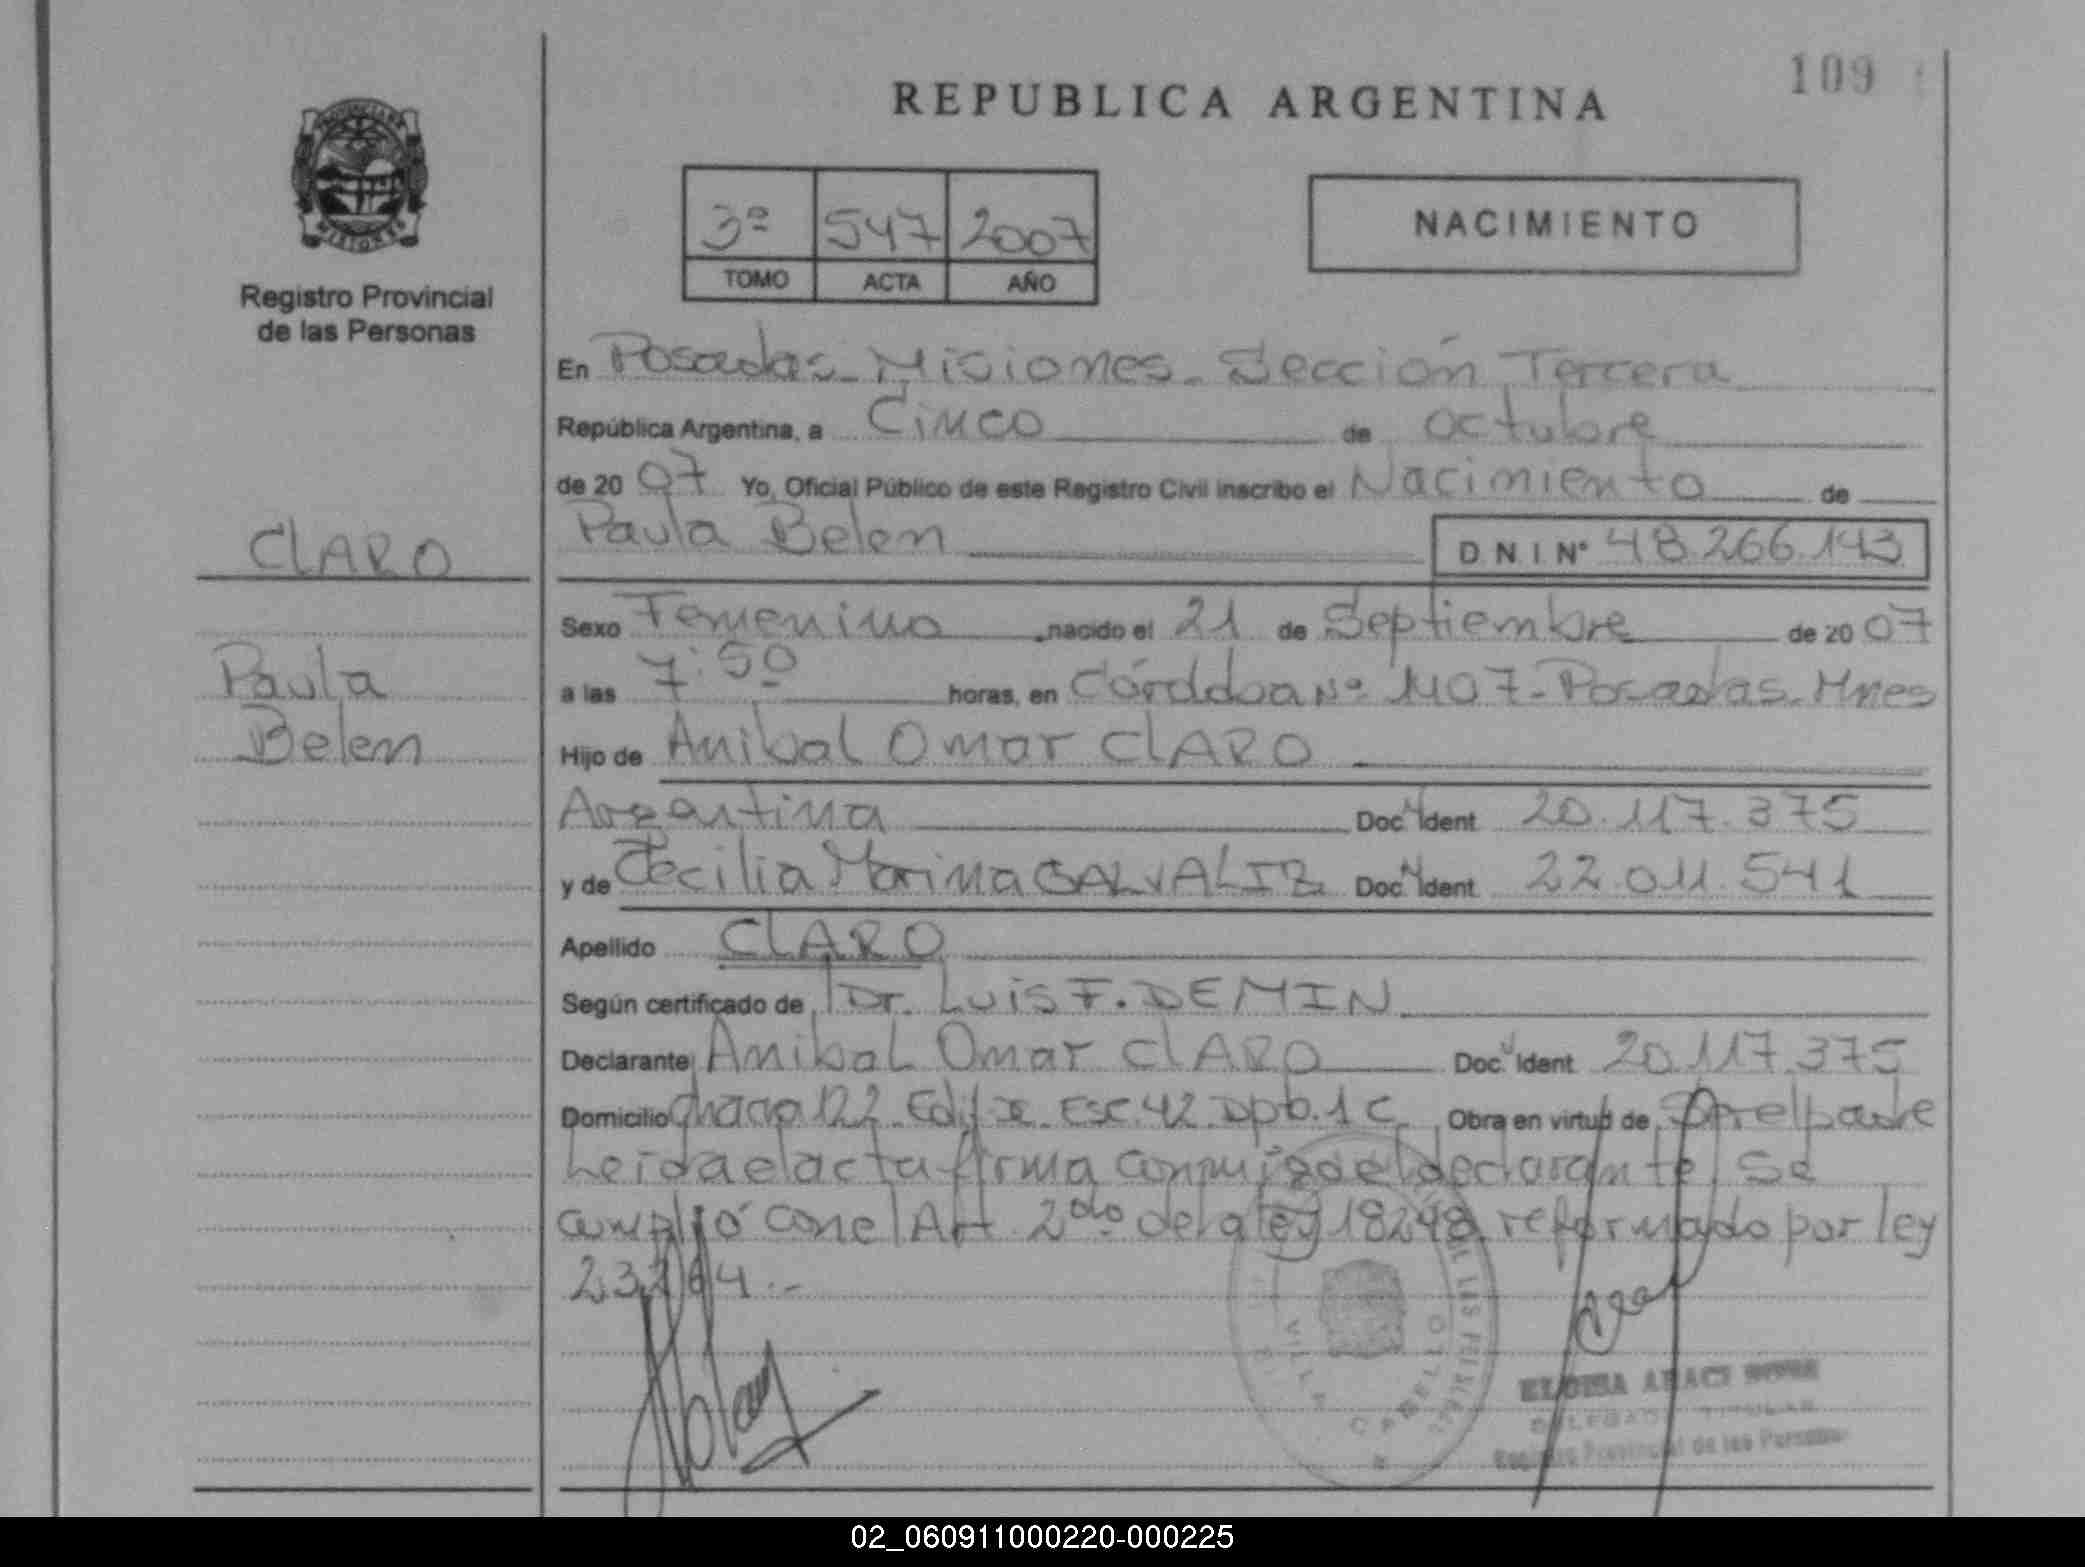 109
REPUBLICA ARGENTINA
PROVINCIA DE
MISIONES
Registro Provincial
de las Personas
3º 547 2007
TOMO ACTA AÑO
NACIMIENTO
En Posadas - Misiones - Sección Tercera
República Argentina, a Cinco de octubre
de 2007 Yo, Oficial Público de este Registro Civil inscribo el Nacimiento de
Paula Belen D.N.I. Nº 48.266.143
CLARO
Paula
Belen
Sexo Femenino nacido el 21 de Septiembre de 2007
a las 7:50 horas, en Córdoba Nº 1407 - Posadas - Mnes
Hijo de Anibal Omar CLARO
Argentina Doc. Ident. 20.117.375
y de Cecilia Marina Doc. Ident. 22.011.541
Apellido CLARO
Según certificado de Dr. Luis F. DEMIN
Declarante Anibal Omar CLARO Doc. Ident. 20.117.375
Domicilio Chacra 122 Edif Esc. 42 Dpto. 1 C Obra en virtud de Ser el padre
Leida el acta firma conmigo el declarante Se
cumplió con el Art 2do de la ley 18248 reformado por ley
23264.-
VILLA CABELLO
DELEGADA TITULAR
Registro Provincial de las Personas
02_060911000220-000225